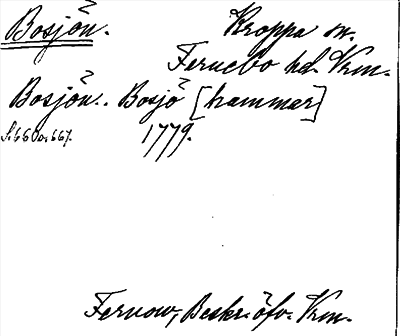 Bosjön.
Kroppa sn.
Fernebo hd. Vrm.
Bosjön. Bosjö [hammar]
S. 660 o. 667. 1779.
Fernow, Beskr. öfv. Vrm.